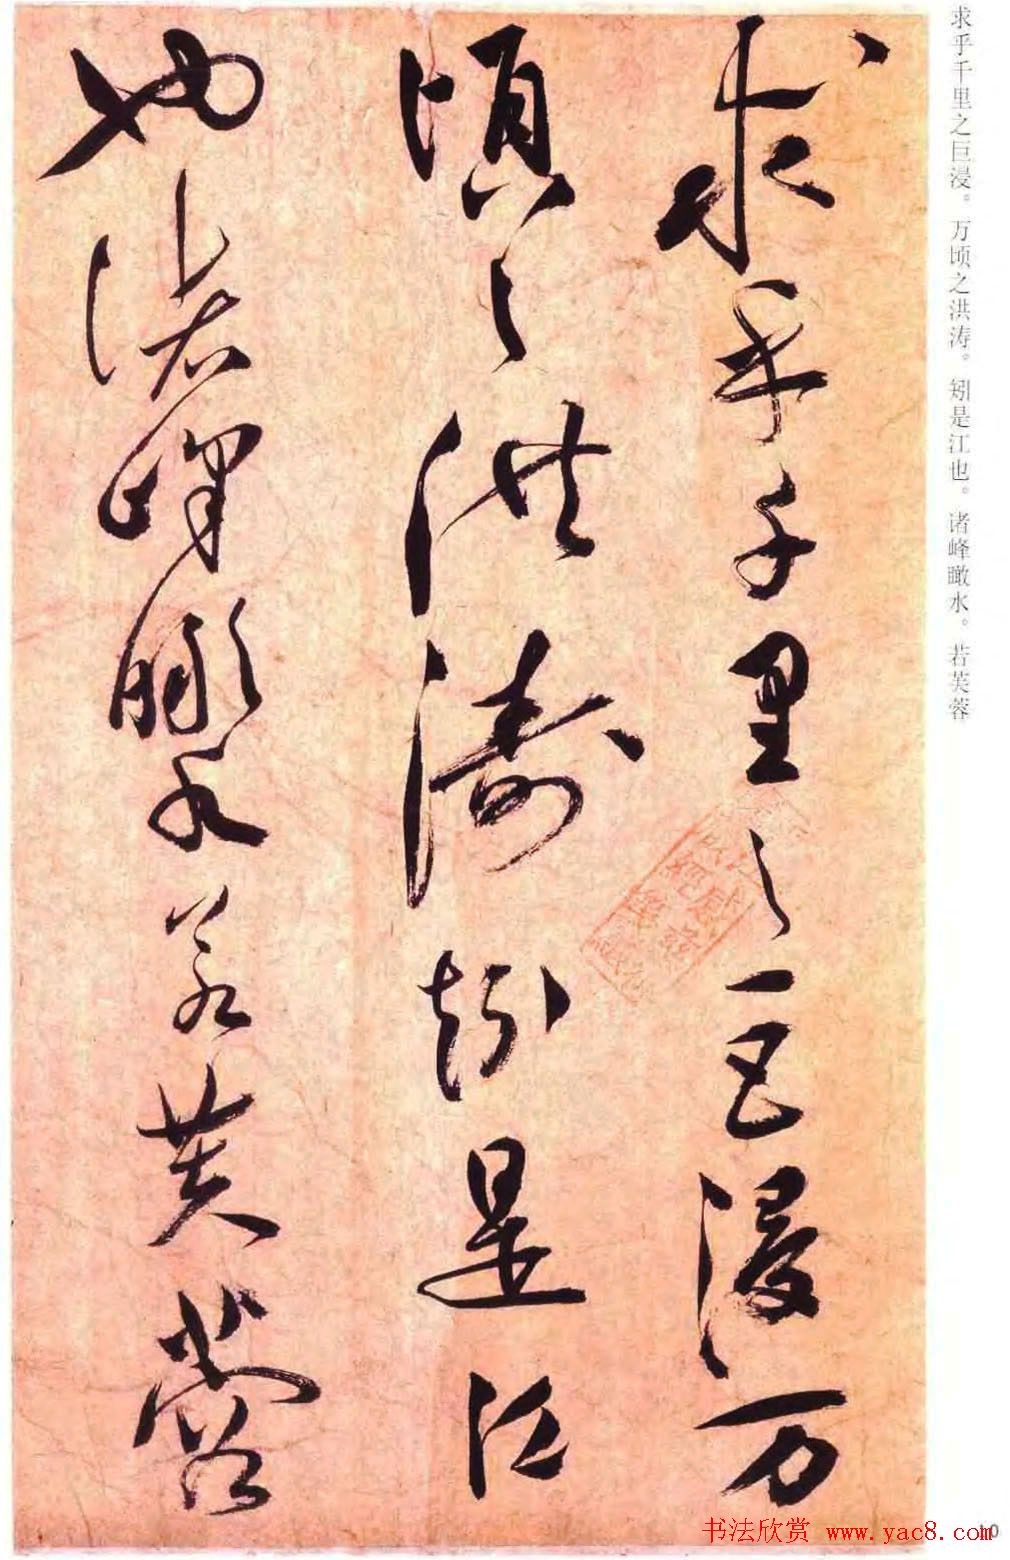 求乎千里之巨浸万
頃之洪濤矧是江
也诸峰瞰水若芙蓉
求乎千里之巨浸。万顷之洪涛。矧是江也。诸峰瞰水。若芙蓉
书法欣赏 www.yac8.com
10